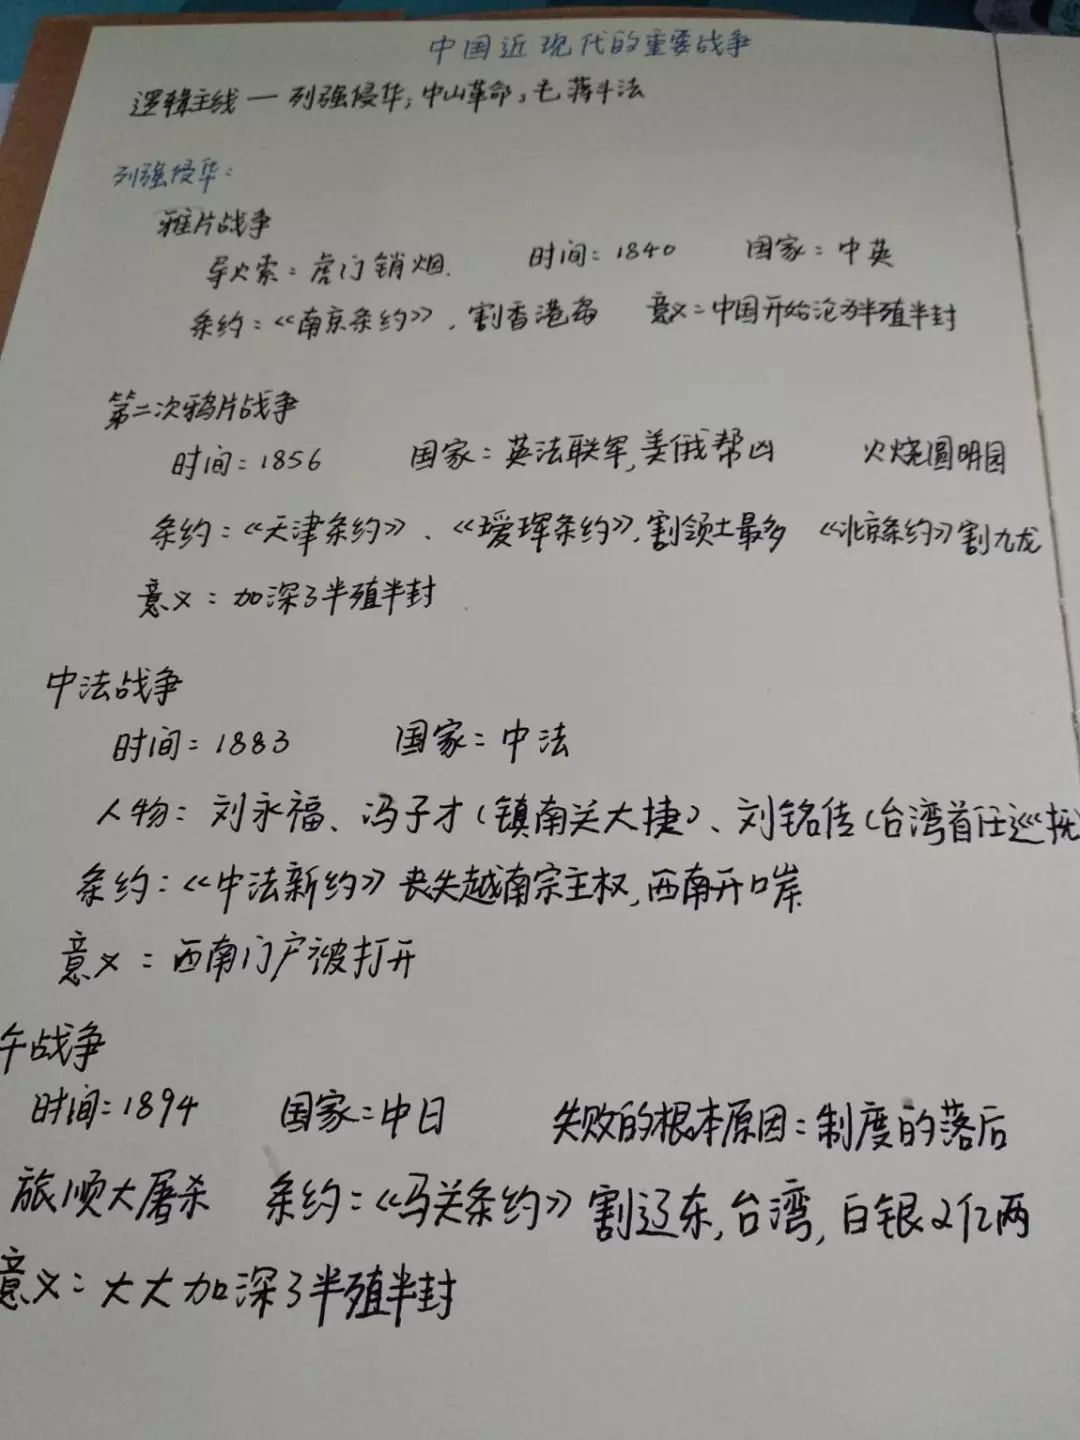 中国近现代的重要战争
逻辑主线—列强侵华,中山革命,毛蒋斗法
列强侵华:
雅片战争
导火索:虎门销烟. 时间:1840 国家:中英
条约:《南京条约》,割香港岛 意义:中国开始沦为半殖半封
第二次鸦片战争
时间:1856 国家:英法联军,美俄帮凶 火烧圆明园
条约:《天津条约》、《瑷珲条约》,割领土最多 《北京条约》割九龙
意义:加深了半殖半封
中法战争
时间:1883 国家:中法
人物:刘永福、冯子才(镇南关大捷)、刘铭传(台湾首任巡抚
条约:《中法新约》丧失越南宗主权,西南开口岸
意义:西南门户被打开
午战争
时间:1894 国家:中日 失败的根本原因:制度的落后
旅顺大屠杀 条约:《马关条约》割辽东,台湾,白银2亿两
意义:大大加深了半殖半封